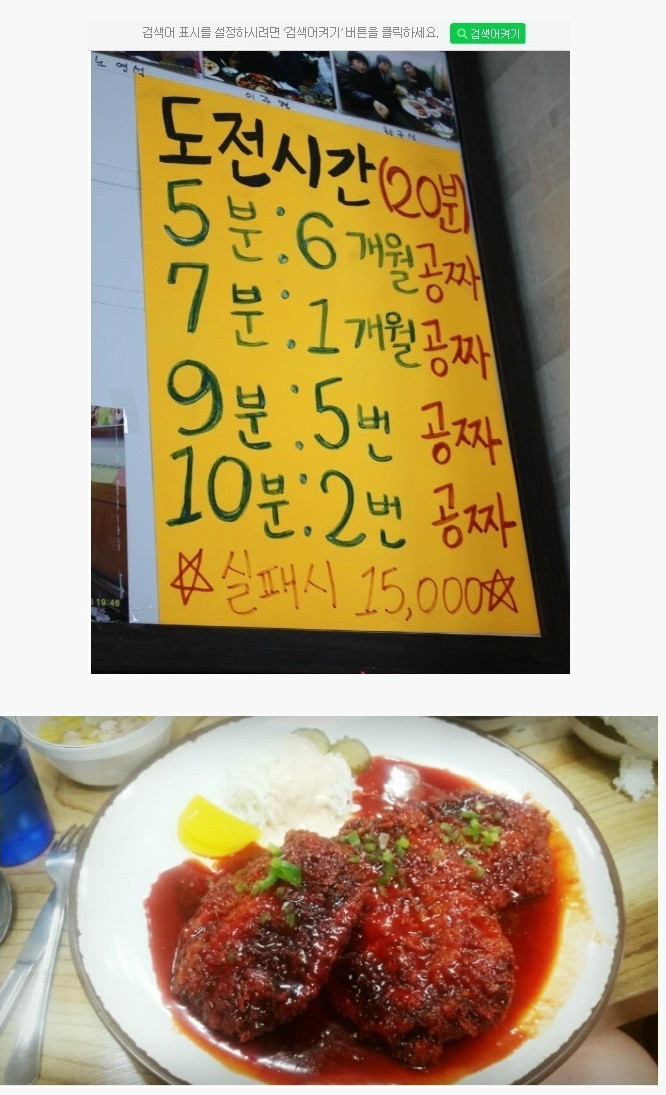 검색어 표시를 설정하시려면 '검색어켜기' 버튼을 클릭하세요. 검색어켜기
노영석
도전시간(20분)
5분:6개월 공짜
7분:1개월 공짜
9분:5번 공짜
10분:2번 공짜
☆실패시 15,000☆
19:46